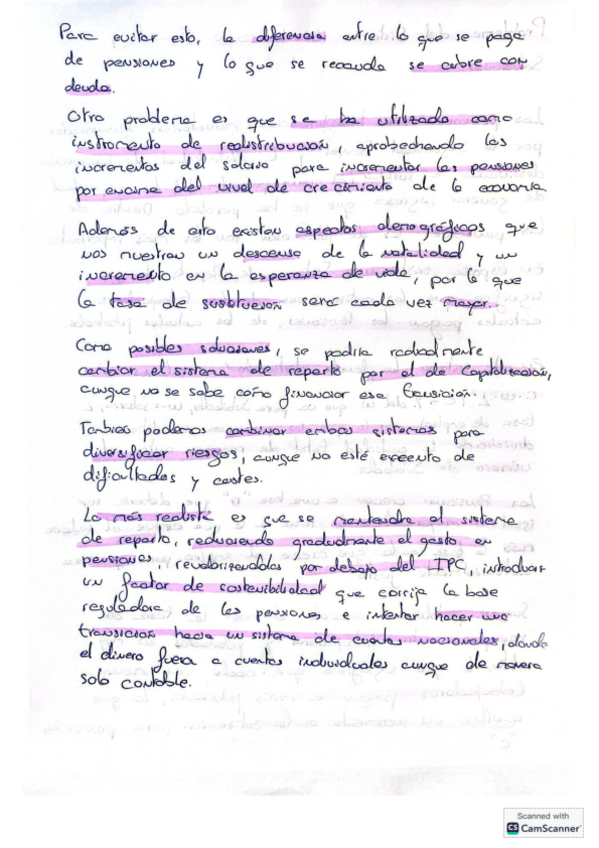 Para evitar esto, la diferencia entre lo que se paga
de pensiones y lo que se recauda se cubre con
deuda.
Otro problema es que se ha utilizado como
instrumento de redistribución, aprobechando los
incrementos del salario para incrementar las pensiones
por encima del nivel de crecimiento de la economía
Además de esto existen aspectos demográficos que
nos muestran un descenso de la natalidad y un
incremento en la esperanza de vida, por lo que
la tasa de sustitución será cada vez mayor.
Como posibles soluciones, se podría radicalmente
cambiar el sistema de reparto por el de Capitalización,
aunque no se sabe cómo financiar esa transición.
También podemos combinar ambos sistemas para
diversificar riesgos, aunque no esté exento de
dificultades y costes.
Lo más realista es que se mantendrá el sistema
de reparto, reduciendo gradualmente el gasto en
pensiones, revalorizandolas por debajo del IPC, introducir
un factor de sostenibilidad que corrija la base
reguladora de las pensiones e intentar hacer una
transición hacia un sistema de cuentas nocionales, donde
el dinero fuera a cuentas individuales aunque de manera
solo contable.
Scanned with
CS CamScanner